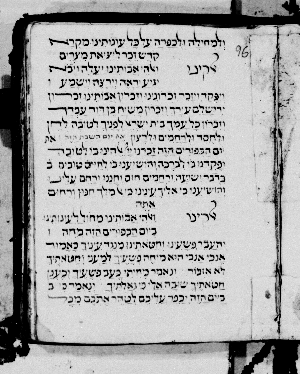 ולמחילה ולכפרה על כל עונותינו מקרא
קדש זכר ליציאת מצרים
אלהי אבותינו יעלה ויבא
יגיע יראה וירצה וישמע
יפקד ויזכר זכרוננו וזכרון אבותינו זכרון
ירושלם עירך וזכרון משיח בן דוד עבדך
וזכרון כל עמך בית ישראל לפניך לטובה לחן
ולחסד ולרחמים
יום הכפורים הזה זכרנו בו לטובה
ופקדנו בו לברכה והושיענו בו לחיים טובים
בדבר ישועה ורחמים חוס וחננו ורחם עלינו
והושיענו כי אליך עינינו כי אל מלך חנון ורחום
אתה
אלהי אבותינו מחול לעונותינו
ביום הכפורים הזה מחה
והעבר פשעינו וחטאתינו מנגד עיניך כאמור
אנכי אנכי הוא מוחה פשעיך למעני וחטאתיך
לא אזכור ונאמר מחיתי כעב פשעיך וכענן
חטאתיך שובה אלי כי גאלתיך ונאמר כי ביום
הזה יכפר עליכם לטהר אתכם מכל
96